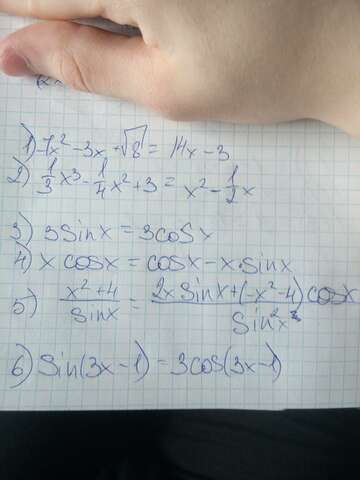 1) 7x² - 3x + √8 = 14x - 3
2) 1/3 x³ - 1/4 x² + 3 = x² - 1/2 x
3) 3sinx = 3cosx
4) x cosx = cosx - x·sinx
5) (x² + 4)/sinx = (2x sinx + (-x² - 4) cosx)/sin²x
6) sin(3x - 1) = 3cos(3x - 1)